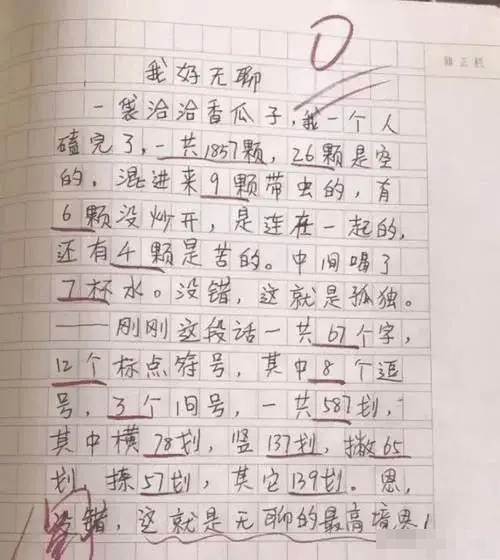 0
订正栏
我好无聊
一袋洽洽香瓜子，我一个人
磕完了，一共1857颗，26颗是空
的，混进来9颗带虫的，有
6颗没炒开，是连在一起的，
还有4颗是苦的。中间喝了
7杯水。没错，这就是孤独。
——刚刚这段话一共67个字，
12个标点符号，其中8个逗
号，3个旧号，一共587划，
其中横78划，竖137划，撇65
划，捺57划，其它139划。恩，
错，这就是无聊的最高境界！